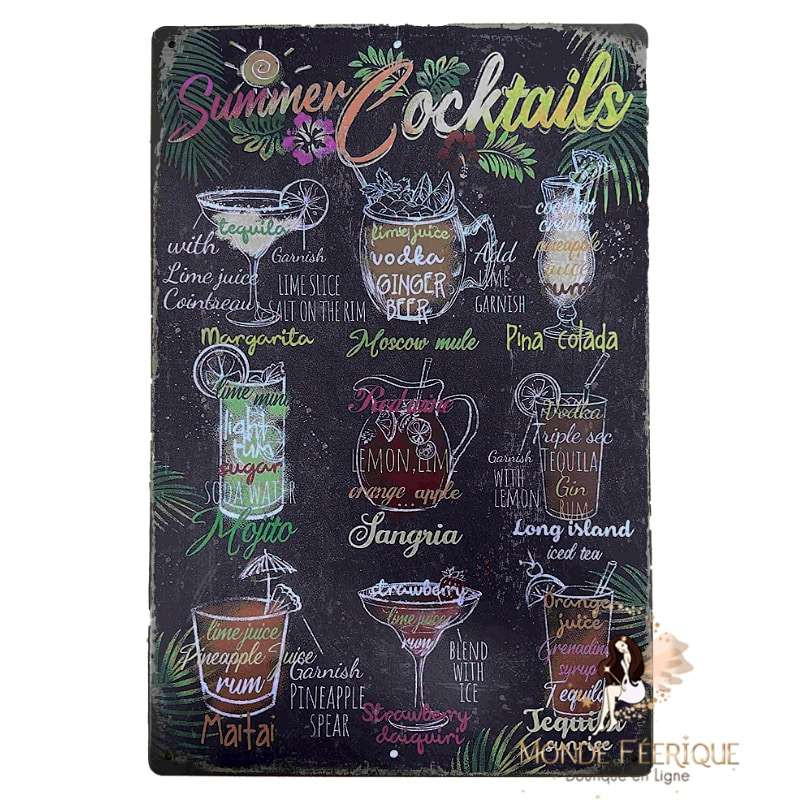 Summer Cocktails
tequila
with
Lime juice
Cointreau
Garnish
LIME SLICE
SALT ON THE RIM
Margarita
lime juice
vodka
GINGER
BEER
Add
LIME
GARNISH
Moscow mule
coconut
cream
pineapple
juice
rum
Pina colada
lime mint
light
rum
sugar
SODA WATER
Mojito
Red wine
LEMON, LIME
orange apple
Sangria
Vodka
Triple sec
TEQUILA
Gin
RUM
Garnish
WITH
LEMON
Long island
iced tea
lime juice
Pineapple Juice
rum
Garnish
PINEAPPLE
SPEAR
Maitai
strawberry
lime juice
rum
BLEND
WITH
ICE
Strawberry
daiquiri
Orange
juice
Grenadine
syrup
Tequila
Tequila
sunrise
MONDE FÉERIQUE
Boutique en Ligne